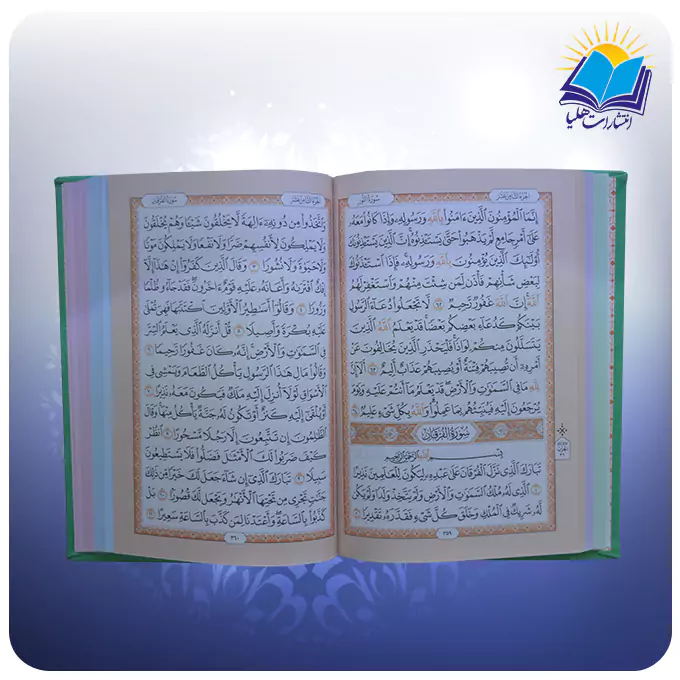 انتشارات هلیا
الجزء الثامن عشر
سورة النور
إِنَّمَا الْمُؤْمِنُونَ الَّذِينَ ءَامَنُوا بِاللَّهِ وَرَسُولِهِ وَإِذَا كَانُوا مَعَهُ
عَلَىٰ أَمْرٍ جَامِعٍ لَمْ يَذْهَبُوا حَتَّىٰ يَسْتَـْٔذِنُوهُ إِنَّ الَّذِينَ يَسْتَـْٔذِنُونَكَ
أُولَٰئِكَ الَّذِينَ يُؤْمِنُونَ بِاللَّهِ وَرَسُولِهِ فَإِذَا اسْتَـْٔذَنُوكَ
لِبَعْضِ شَأْنِهِمْ فَأْذَنْ لِمَنْ شِئْتَ مِنْهُمْ وَاسْتَغْفِرْ لَهُمُ
اللَّهَ إِنَّ اللَّهَ غَفُورٌ رَحِيمٌ ٦٢ لَا تَجْعَلُوا دُعَاءَ الرَّسُولِ
بَيْنَكُمْ كَدُعَاءِ بَعْضِكُمْ بَعْضًا قَدْ يَعْلَمُ اللَّهُ الَّذِينَ
يَتَسَلَّلُونَ مِنْكُمْ لِوَاذًا فَلْيَحْذَرِ الَّذِينَ يُخَالِفُونَ عَنْ
أَمْرِهِ أَنْ تُصِيبَهُمْ فِتْنَةٌ أَوْ يُصِيبَهُمْ عَذَابٌ أَلِيمٌ ٦٣ أَلَا إِنَّ
لِلَّهِ مَا فِي السَّمَٰوَٰتِ وَالْأَرْضِ قَدْ يَعْلَمُ مَا أَنْتُمْ عَلَيْهِ وَيَوْمَ
يُرْجَعُونَ إِلَيْهِ فَيُنَبِّئُهُمْ بِمَا عَمِلُوا وَاللَّهُ بِكُلِّ شَيْءٍ عَلِيمٌ ٦٤
سُورَةُ الْفُرْقَانِ
بِسْمِ اللَّهِ الرَّحْمَٰنِ الرَّحِيمِ
تَبَارَكَ الَّذِي نَزَّلَ الْفُرْقَانَ عَلَىٰ عَبْدِهِ لِيَكُونَ لِلْعَالَمِينَ نَذِيرًا
١ الَّذِي لَهُ مُلْكُ السَّمَٰوَٰتِ وَالْأَرْضِ وَلَمْ يَتَّخِذْ وَلَدًا وَلَمْ يَكُنْ
لَهُ شَرِيكٌ فِي الْمُلْكِ وَخَلَقَ كُلَّ شَيْءٍ فَقَدَّرَهُ تَقْدِيرًا ٢
٣٥٩
الجزء الثامن عشر
سورة الفرقان
وَاتَّخَذُوا مِنْ دُونِهِ ءَالِهَةً لَا يَخْلُقُونَ شَيْئًا وَهُمْ يُخْلَقُونَ
وَلَا يَمْلِكُونَ لِأَنْفُسِهِمْ ضَرًّا وَلَا نَفْعًا وَلَا يَمْلِكُونَ مَوْتًا
وَلَا حَيَوٰةً وَلَا نُشُورًا ٣ وَقَالَ الَّذِينَ كَفَرُوا إِنْ هَٰذَا إِلَّا
إِفْكٌ افْتَرَىٰهُ وَأَعَانَهُ عَلَيْهِ قَوْمٌ ءَاخَرُونَ فَقَدْ جَاءُو ظُلْمًا
وَزُورًا ٤ وَقَالُوا أَسَاطِيرُ الْأَوَّلِينَ اكْتَتَبَهَا فَهِيَ تُمْلَىٰ
عَلَيْهِ بُكْرَةً وَأَصِيلًا ٥ قُلْ أَنْزَلَهُ الَّذِي يَعْلَمُ السِّرَّ
فِي السَّمَٰوَٰتِ وَالْأَرْضِ إِنَّهُ كَانَ غَفُورًا رَحِيمًا ٦
وَقَالُوا مَالِ هَٰذَا الرَّسُولِ يَأْكُلُ الطَّعَامَ وَيَمْشِي فِي
الْأَسْوَاقِ لَوْلَا أُنْزِلَ إِلَيْهِ مَلَكٌ فَيَكُونَ مَعَهُ نَذِيرًا ٧
أَوْ يُلْقَىٰ إِلَيْهِ كَنْزٌ أَوْ تَكُونُ لَهُ جَنَّةٌ يَأْكُلُ مِنْهَا وَقَالَ
الظَّالِمُونَ إِنْ تَتَّبِعُونَ إِلَّا رَجُلًا مَسْحُورًا ٨ انْظُرْ
كَيْفَ ضَرَبُوا لَكَ الْأَمْثَالَ فَضَلُّوا فَلَا يَسْتَطِيعُونَ
سَبِيلًا ٩ تَبَارَكَ الَّذِي إِنْ شَاءَ جَعَلَ لَكَ خَيْرًا مِنْ ذَٰلِكَ
جَنَّاتٍ تَجْرِي مِنْ تَحْتِهَا الْأَنْهَارُ وَيَجْعَلْ لَكَ قُصُورًا ١٠ بَلْ
كَذَّبُوا بِالسَّاعَةِ وَأَعْتَدْنَا لِمَنْ كَذَّبَ بِالسَّاعَةِ سَعِيرًا ١١
٣٦٠